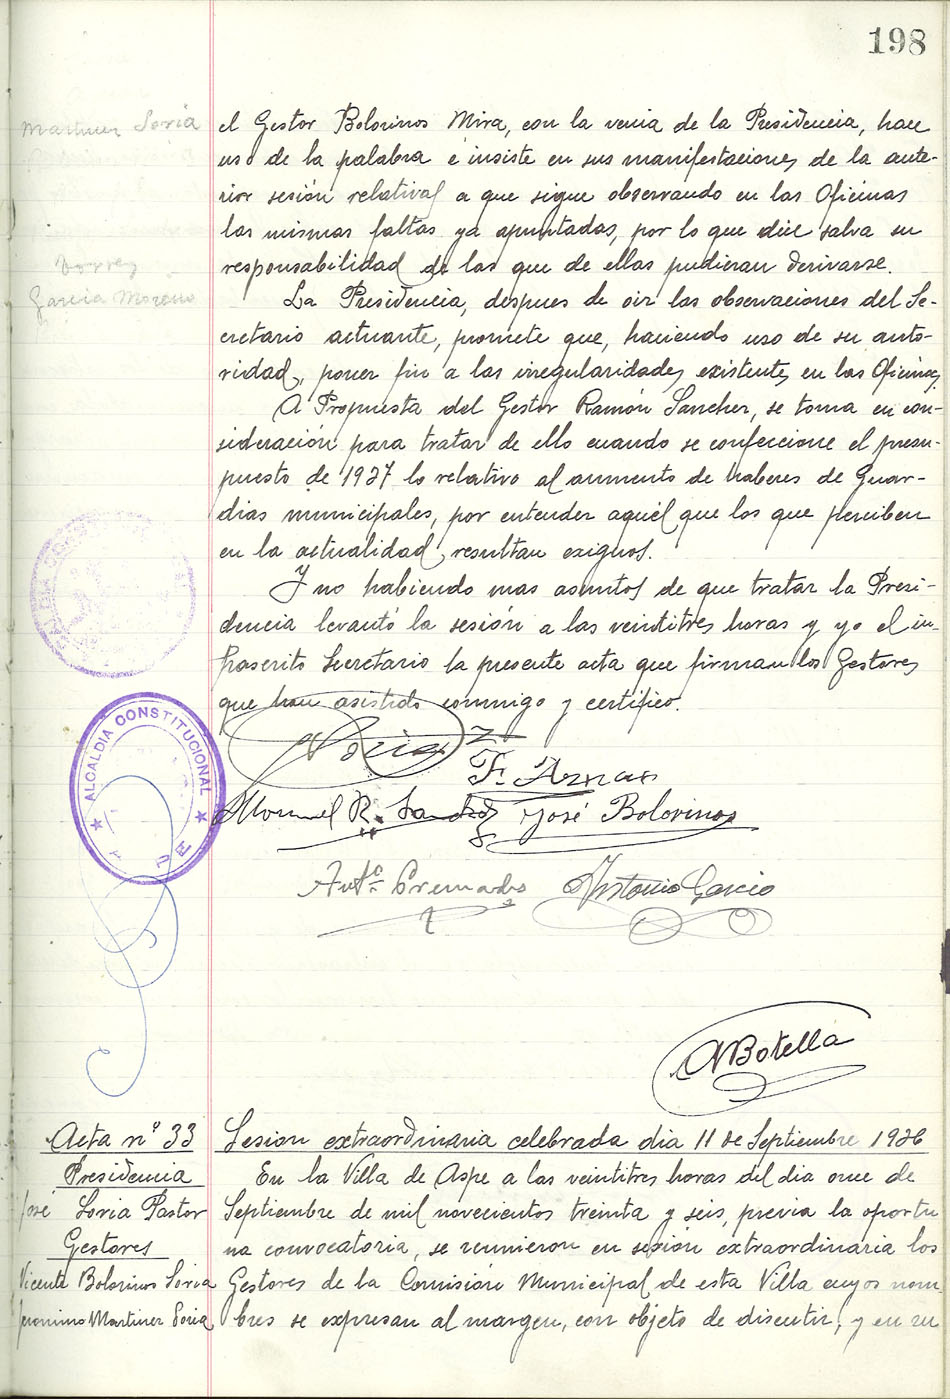 198
Martinez Soria
Torres
Garcia Moreno
el Gestor Bolorinos Mira, con la venia de la Presidencia, hace
uso de la palabra e insiste en sus manifestaciones de la ante-
rior sesión relativas a que sigue observando en las Oficinas
las mismas faltas ya apuntadas, por lo que dice salva su
responsabilidad de las que de ellas pudieran derivarse.
La Presidencia, despues de oir las observaciones del Se-
cretario actuante, promete que, haciendo uso de su auto-
ridad, poner fin a las irregularidades existentes en las Oficinas
A Propuesta del Gestor Ramón Sanchez, se toma en con-
sideración para tratar de ello cuando se confeccione el presu-
puesto de 1937 lo relativo al aumento de haberes de Guar-
dias municipales, por entender aquél que los que perciben
en la actualidad, resultan exiguos.
Y no habiendo mas asuntos de que tratar la Presi-
dencia levantó la sesión a las veintitres horas y yo el in-
frascrito Secretario la presente acta que firman los Gestores
que han asistido conmigo y certifico.
ALCALDIA CONSTITUCIONAL
J. Soria
F. Aznar
Manuel R. Sanchez José Bolorinos
Antº Cremades Antonio Garcia
A Botella
Acta nº 33
Presidencia
José Soria Pastor
Gestores
Vicente Bolorinos Soria
Jeronimo Martinez Soria
Sesion extraordinaria celebrada dia 11 de Septiembre 1936
En la Villa de Aspe a las veintitres horas del dia once de
Septiembre de mil novecientos treinta y seis, previa la oportu
na convocatoria, se reunieron en sesión extraordinaria los
Gestores de la Comisión Municipal de esta Villa cuyos nom-
bres se expresan al margen, con objeto de discutir, y en su